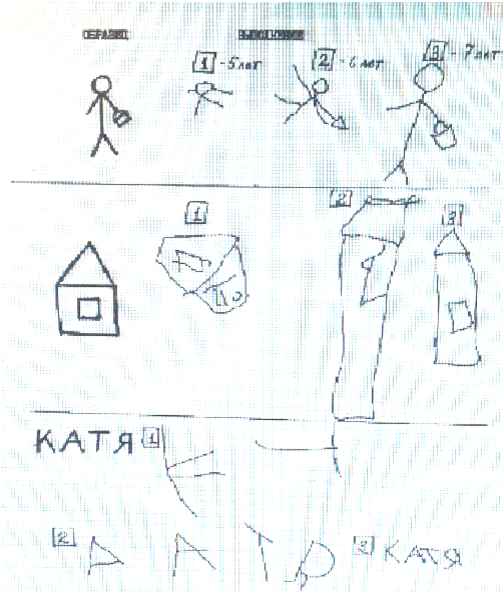 ОБРАЗЕЦ ВЫПОЛНЕНИЕ
1 - 5 лет 2 - 6 лет 3 - 7 лет
1 2 3
КАТЯ 1
2 3 КАТЯ